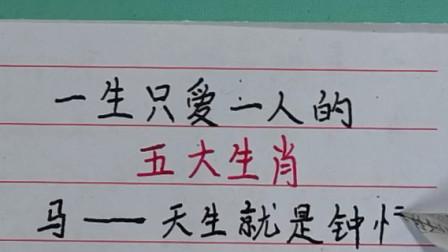 一生只爱一人的
五大生肖
马——天生就是钟